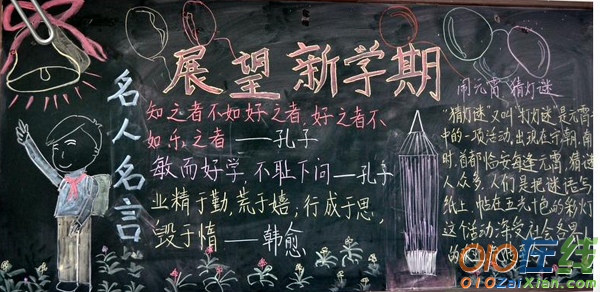 展望新学期
名人名言
知之者不如好之者,好之者不
如乐之者——孔子
敏而好学,不耻下问——孔子
业精于勤,荒于嬉;行成于思,
毁于惰——韩愈
闹元宵 猜灯谜
"猜灯谜"又叫"打灯谜"是元宵
中的一项活动,出现在宋朝.南
时,首都临安每逢元宵,猜谜
人众多,人们是把谜
纸上,帖在五光十色的彩灯
这个活动深受社会各界人
的
010在线
010ZaiXian.com